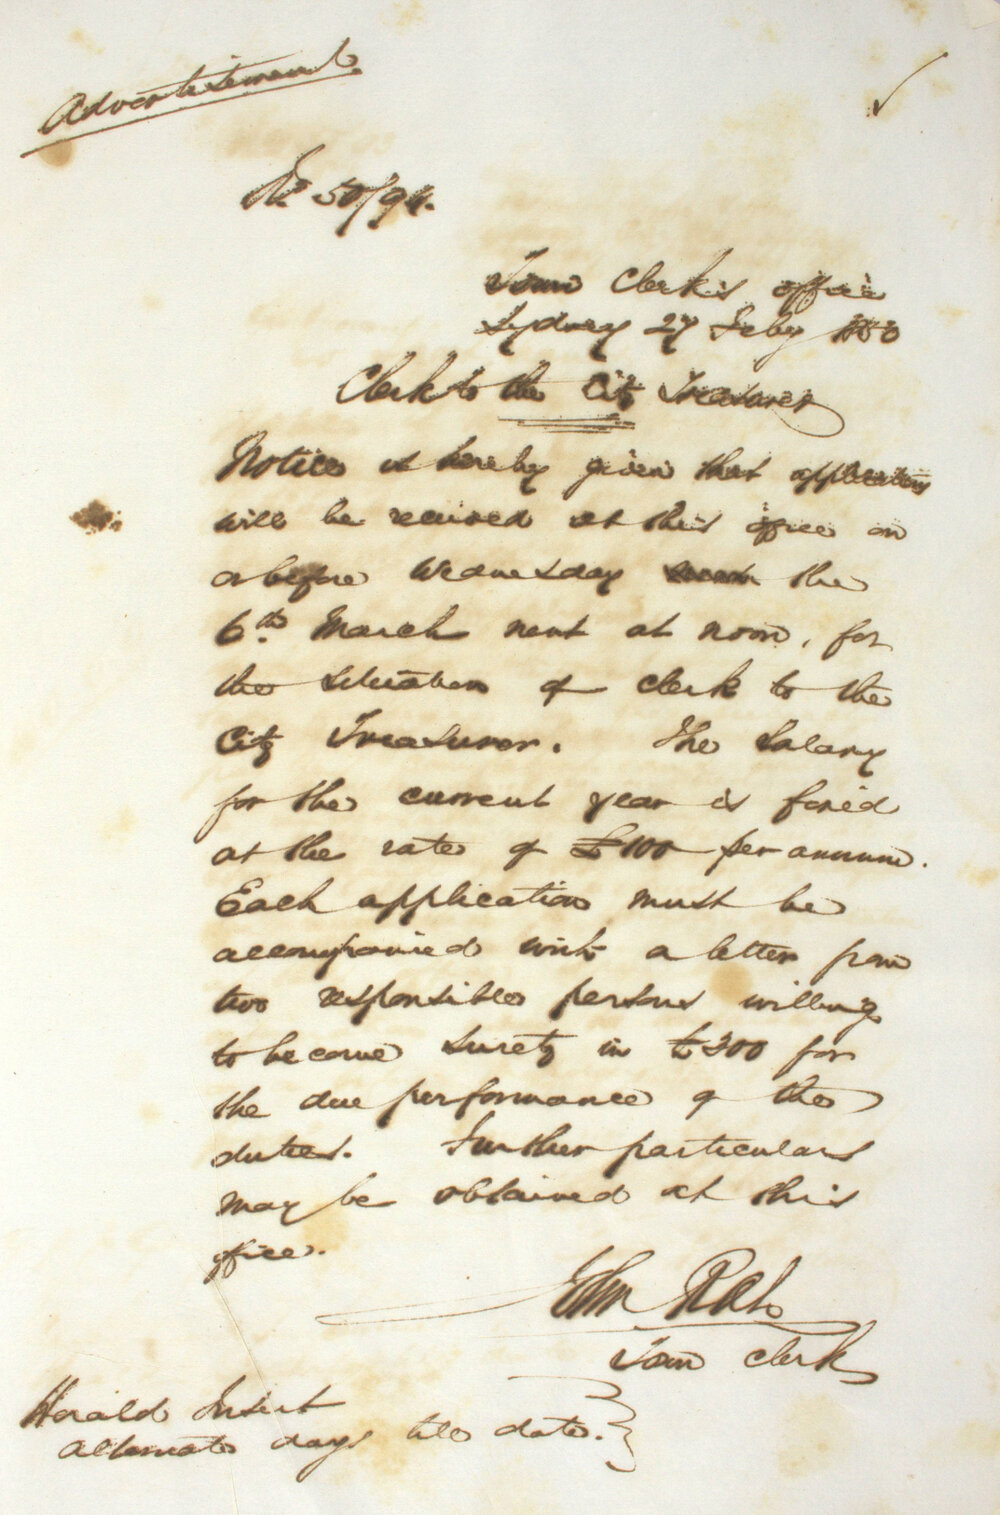 Advertisement.
No 50/94.
Town Clerk's office
Sydney 27 Feby 1850
Clerk to the City Treasurer
Notice is hereby given that applications
will be received at this office on
or before Wednesday the
6th March next at noon, for
the situation of Clerk to the
City Treasurer. The Salary
for the current year is fixed
at the rate of £100 per annum.
Each application must be
accompanied with a letter from
two responsible persons willing
to become surety in £200 for
the due performance of the
duties. Further particulars
may be obtained at this
office.
John Rae
Town Clerk
Herald Insert
alternate days till date.